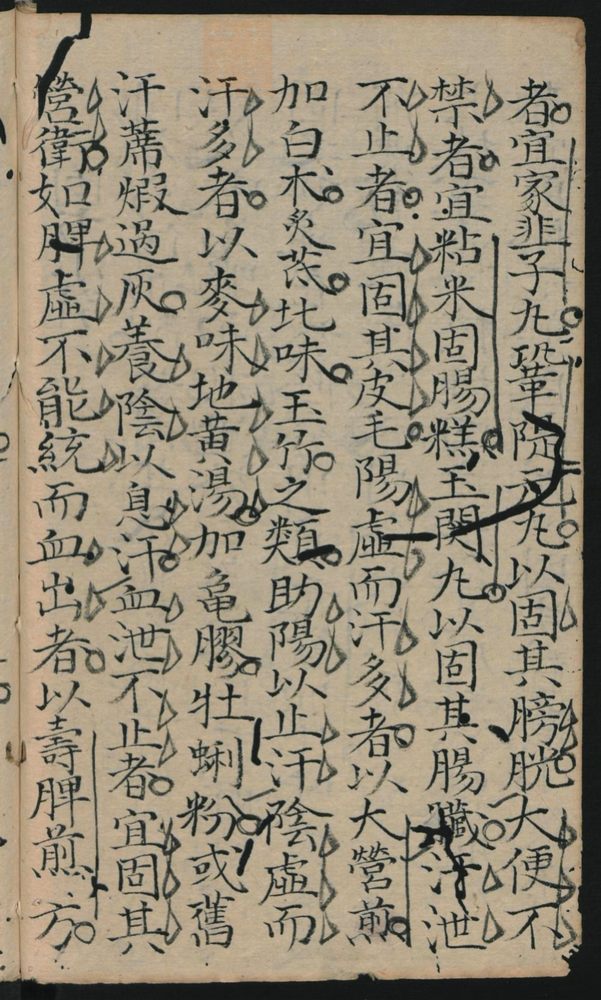 者宜家韭子丸鞏隄丸以固其膀胱大便不
禁者宜粘米固腸糕玉関丸以固其腸臟汗泄
不止者宜固其皮毛陽虛而汗多者以大營煎
加白朮炙芪北味玉竹之類助陽以止汗陰虛而
汗多者以麥味地黃湯加龜膠牡蜊粉或舊
汗蓆煅過灰養陰以息汗血泄不止者宜固其
營衛如脾虛不能統而血出者以壽脾煎方